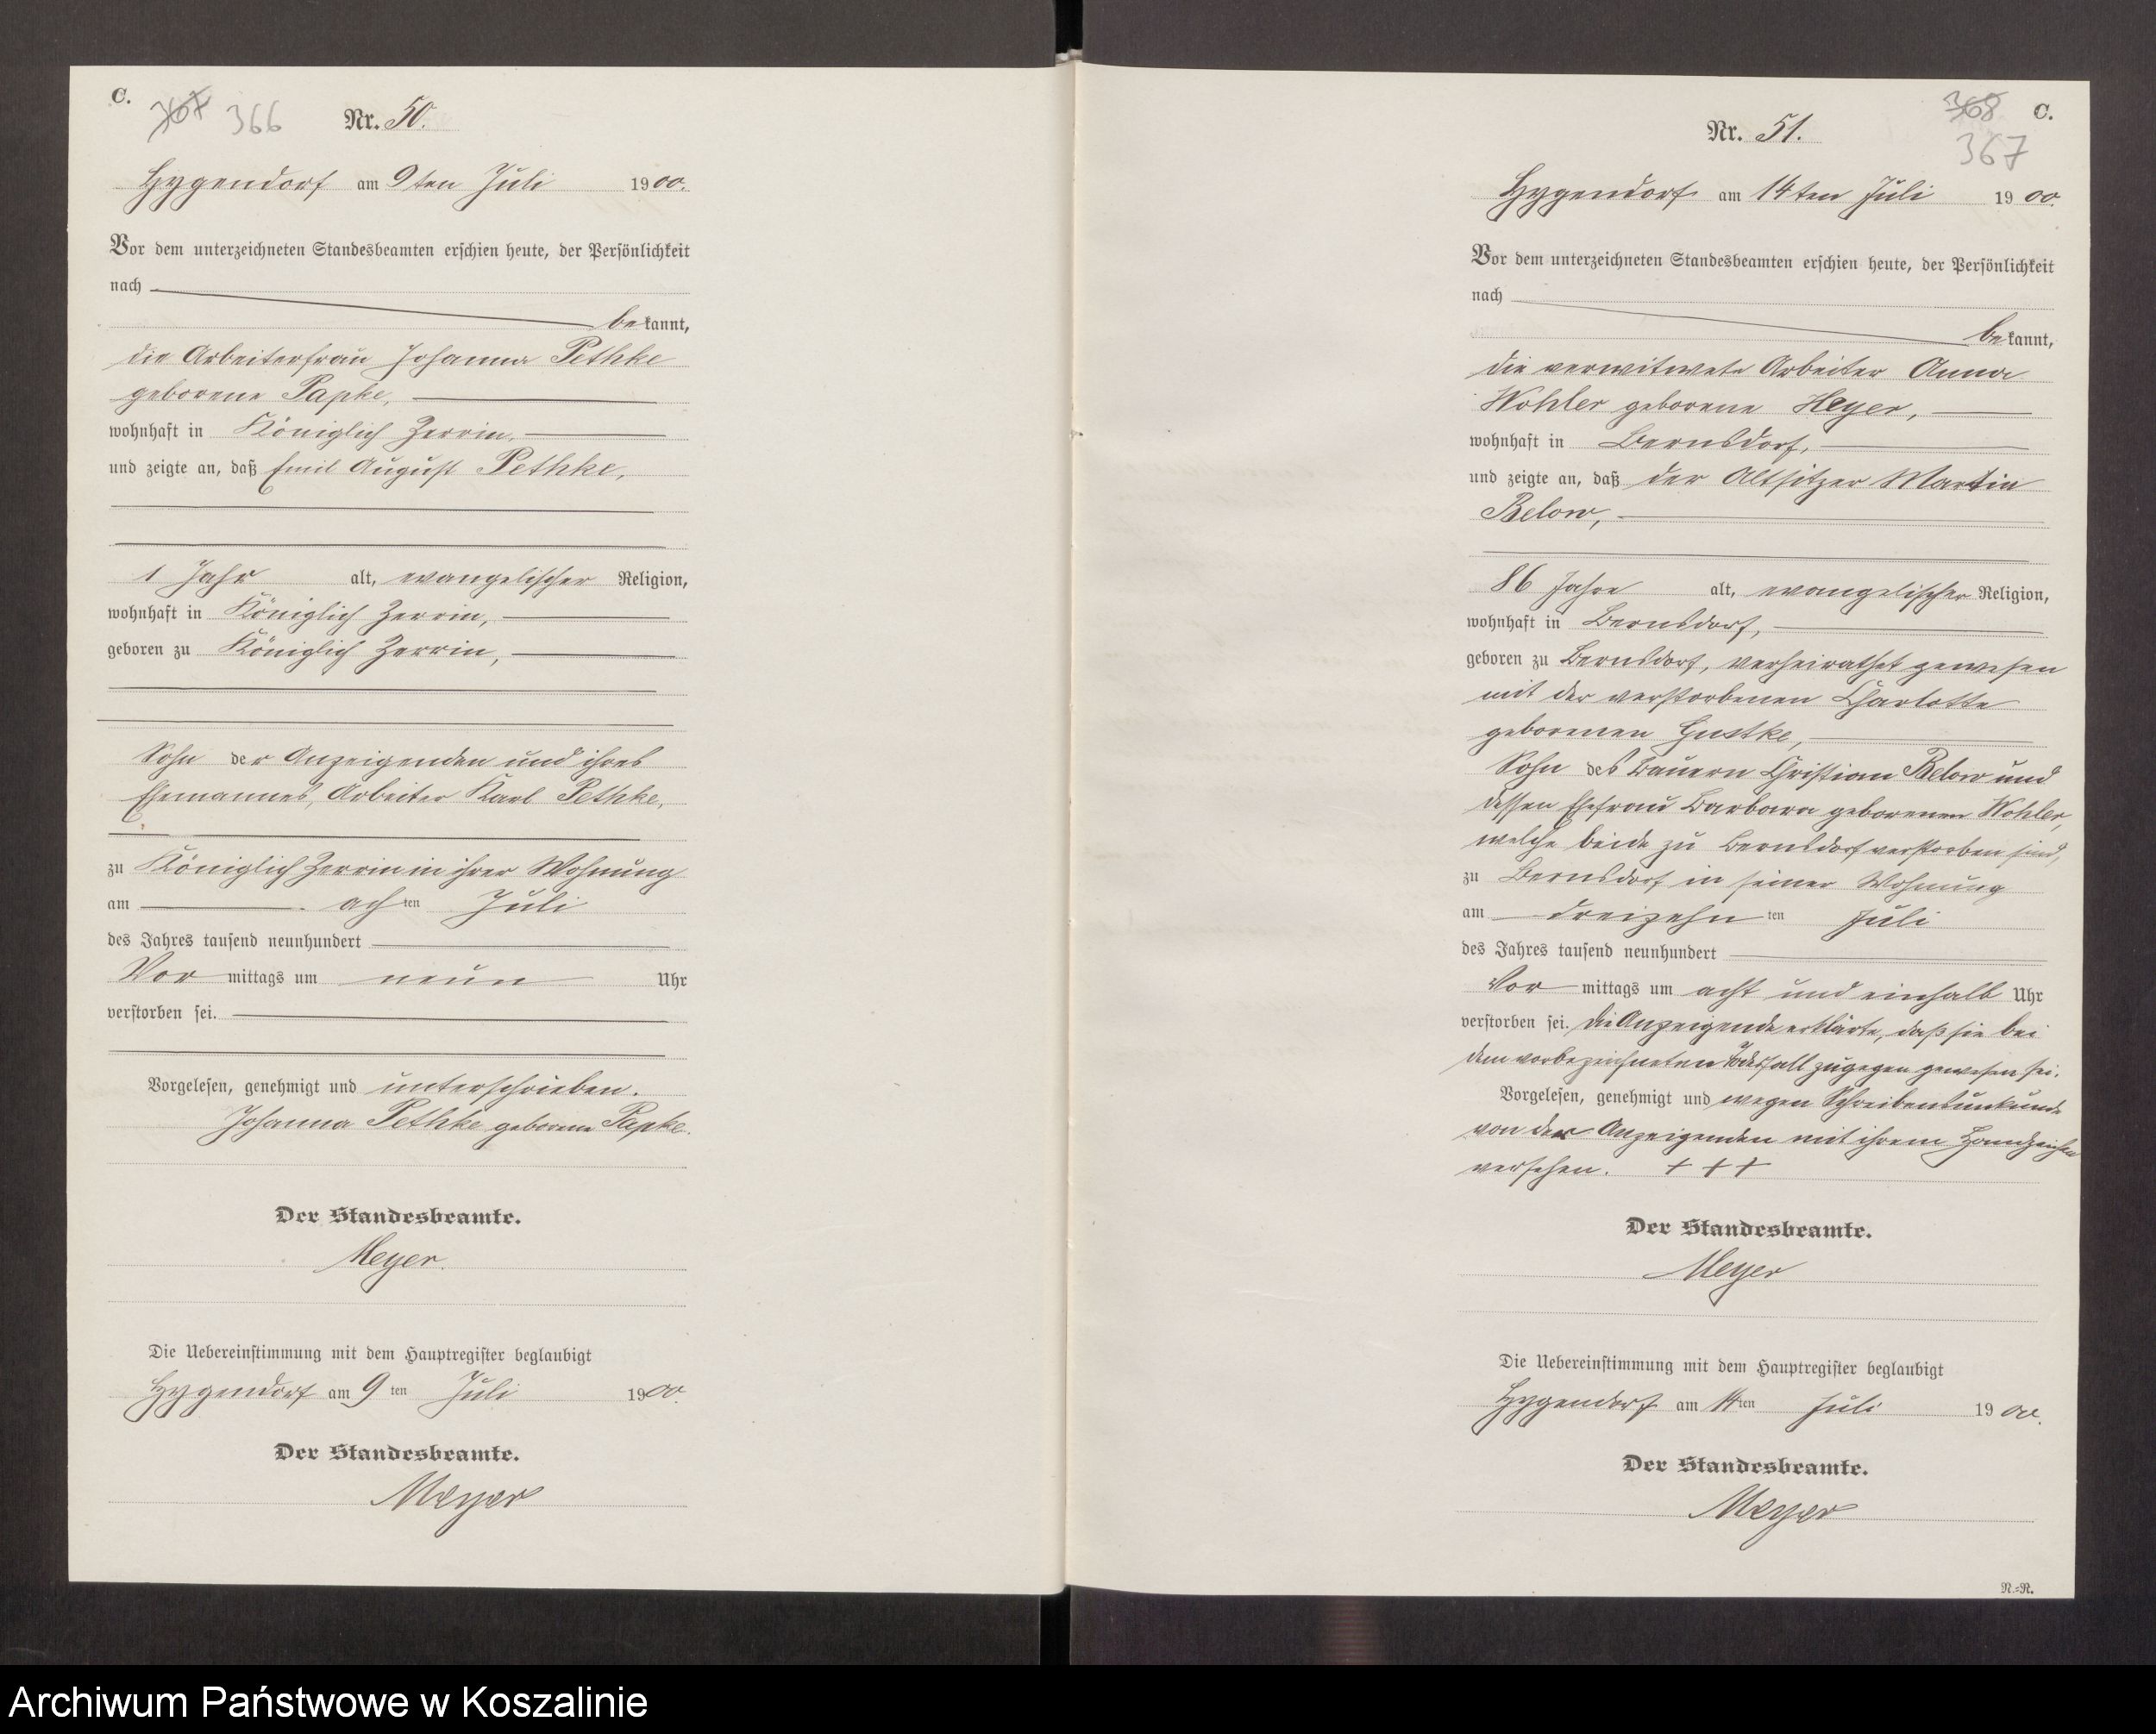 C.
367 366
Nr. 50.
Hygendorf am 9ten Juli 1900.
Vor dem unterzeichneten Standesbeamten erschien heute, der Persönlichkeit
nach
bekannt,
die Arbeiterfrau Johanna Pethke
geborene Papke,
wohnhaft in Königlich Zerrin,
und zeigte an, daß Emil August Pethke,
1 Jahr alt, evangelischer Religion,
wohnhaft in Königlich Zerrin,
geboren zu Königlich Zerrin,
Sohn der Anzeigenden und ihres
Ehemannes, Arbeiter Karl Pethke,
zu Königlich Zerrin in ihrer Wohnung
am achten Juli
des Jahres tausend neunhundert
Vormittags um neun Uhr
verstorben sei.
Vorgelesen, genehmigt und unterschrieben.
Johanna Pethke geborene Papke.
Der Standesbeamte.
Meyer.
Die Uebereinstimmung mit dem Hauptregister beglaubigt
Hygendorf am 9ten Juli 1900.
Der Standesbeamte.
Meyer
368 C.
367
Nr. 51.
Hygendorf am 14ten Juli 1900.
Vor dem unterzeichneten Standesbeamten erschien heute, der Persönlichkeit
nach
bekannt,
die verwitwete Arbeiter Anna
Wohler geborene Heyer,
wohnhaft in Bernsdorf,
und zeigte an, daß der Altsitzer Martin
Below,
86 Jahre alt, evangelischer Religion,
wohnhaft in Bernsdorf,
geboren zu Bernsdorf, verheirathet gewesen
mit der verstorbenen Charlotte
geborenen Gustke,
Sohn des Bauern Christian Below und
dessen Ehefrau Barbara geborenen Wohler,
welche beide zu Bernsdorf verstorben sind,
zu Bernsdorf in seiner Wohnung
am dreizehnten Juli
des Jahres tausend neunhundert
Vormittags um acht und einhalb Uhr
verstorben sei. Die Anzeigende erklärte, daß sie bei
dem vorbezeichneten Todesfall zugegen gewesen sei.
Vorgelesen, genehmigt und wegen Schreibensunkunde
von der Anzeigenden mit ihrem Handzeichen
versehen. + + +
Der Standesbeamte.
Meyer
Die Uebereinstimmung mit dem Hauptregister beglaubigt
Hygendorf am 14ten Juli 1900.
Der Standesbeamte.
Meyer
N.=N.
Archiwum Państwowe w Koszalinie